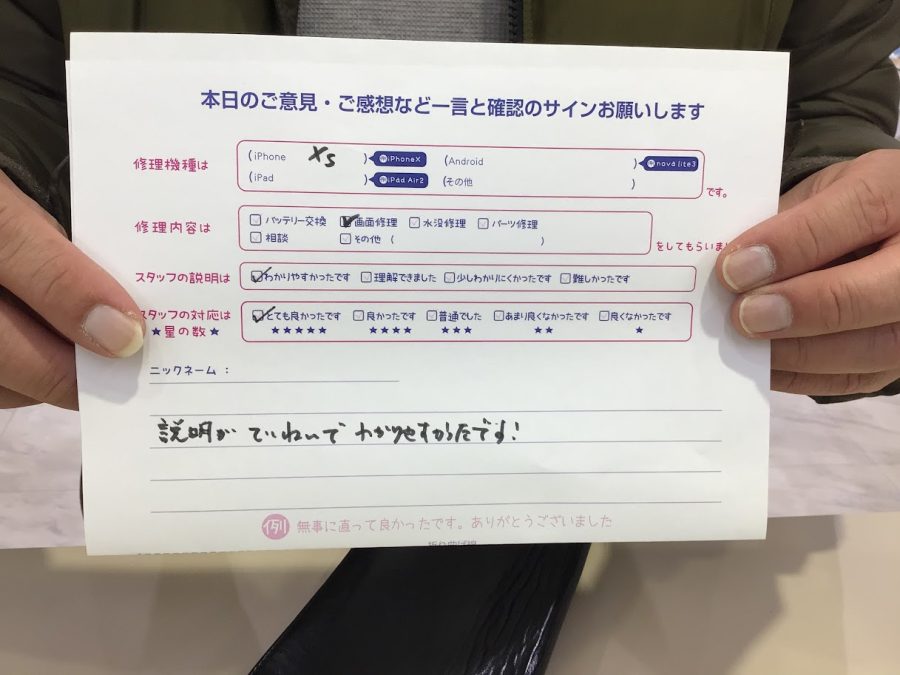 本日のご意見・ご感想など一言と確認のサインお願いします
修理機種は (iPhone XS ) 例iPhoneX (Android ) 例nova lite3
(iPad ) 例iPad Air2 (その他 ) です。
修理内容は バッテリー交換 画面修理 水没修理 パーツ修理
相談 その他 ( ) をしてもらいまし
スタッフの説明は わかりやすかったです 理解できました 少しわかりにくかったです 難しかったです
スタッフの対応は とても良かったです 良かったです 普通でした あまり良くなかったです 良くなかったです
★星の数★ ★★★★★ ★★★★ ★★★ ★★ ★
ニックネーム：
説明が ていねいで わかりやすかったです!
例 無事に直って良かったです。ありがとうございました